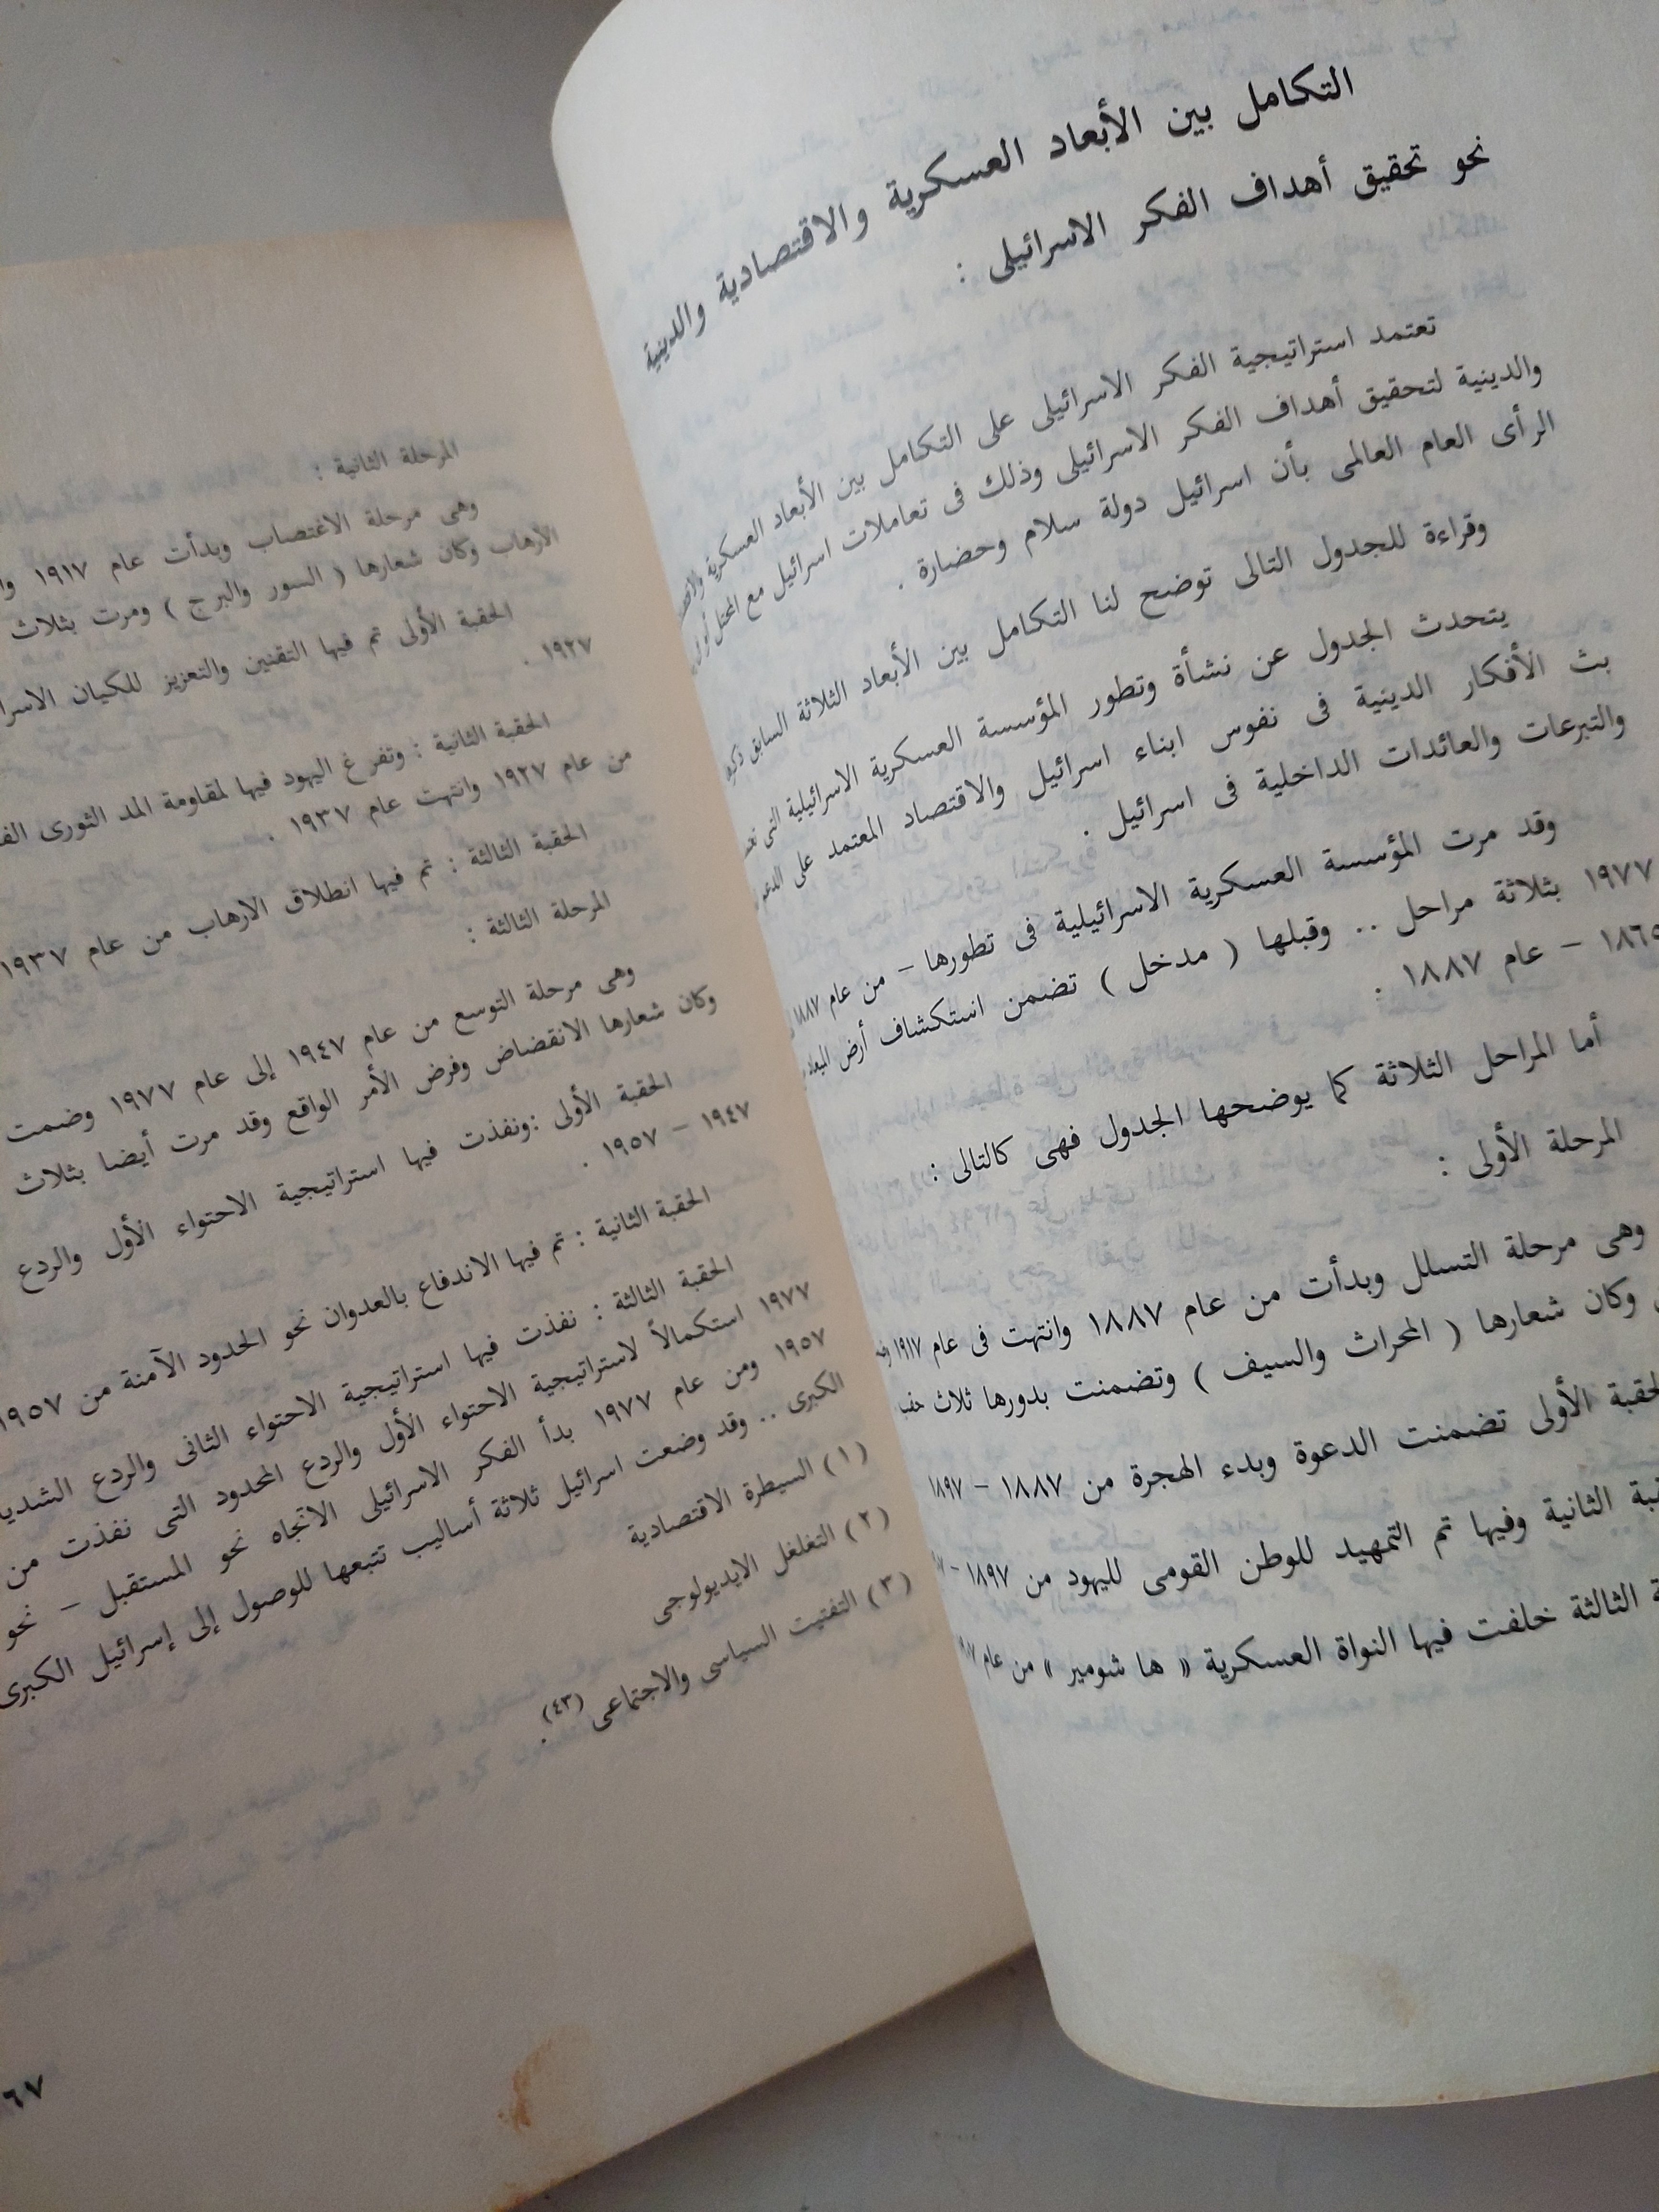 التكامل بين الأبعاد العسكرية والاقتصادية والدينية
نحو تحقيق أهداف الفكر الاسرائيلى :
تعتمد استراتيجية الفكر الاسرائيلى على التكامل بين الأبعاد العسكرية
والدينية لتحقيق أهداف الفكر الاسرائيلى وذلك فى تعاملات اسرائيل مع
الرأى العام العالمى بأن اسرائيل دولة سلام وحضارة .
وقراءة للجدول التالى توضح لنا التكامل بين الأبعاد الثلاثة السابق
يتحدث الجدول عن نشأة وتطور المؤسسة العسكرية الاسرائيلية التى
بث الأفكار الدينية فى نفوس ابناء اسرائيل والاقتصاد المعتمد على
والتبرعات والعائدات الداخلية فى اسرائيل .
وقد مرت المؤسسة العسكرية الاسرائيلية فى تطورها – من عام ١٨٨٧
١٩٧٧ بثلاثة مراحل .. وقبلها ( مدخل ) تضمن استكشاف أرض
١٨٦٥ – عام ١٨٨٧ .
أما المراحل الثلاثة كما يوضحها الجدول فهى كالتالى :
المرحلة الأولى :
وهى مرحلة التسلل وبدأت من عام ١٨٨٧ وانتهت فى عام ١٩١٧
وكان شعارها ( المحراث والسيف ) وتضمنت بدورها ثلاث
الأولى تضمنت الدعوة وبدء الهجرة من ١٨٨٧ – ١٨٩٧
الثانية وفيها تم التمهيد للوطن القومى لليهود من ١٨٩٧ –
الثالثة خلفت فيها النواة العسكرية « ها شومير » من عام
المرحلة الثانية :
وهى مرحلة الاغتصاب وبدأت عام ١٩١٧
الارهاب وكان شعارها ( السور والبرج ) ومرت بثلاث
الحقبة الأولى تم فيها التقنين والتعزيز للكيان
١٩٢٧ .
الحقبة الثانية : وتفرغ اليهود فيها لمقاومة المد الثورى
من عام ١٩٢٧ وانتهت عام ١٩٣٧ .
الحقبة الثالثة : تم فيها انطلاق الارهاب من عام ١٩٣٧
المرحلة الثالثة :
وهى مرحلة التوسع من عام ١٩٤٧ إلى عام ١٩٧٧ وضمت
وكان شعارها الانقضاض وفرض الأمر الواقع وقد مرت أيضا بثلاث
الحقبة الأولى :ونفذت فيها استراتيجية الاحتواء الأول والردع
١٩٤٧ – ١٩٥٧ .
الحقبة الثانية : تم فيها الاندفاع بالعدوان نحو الحدود الآمنة من ١٩٥٧
الحقبة الثالثة : نفذت فيها استراتيجية الاحتواء الثانى والردع
١٩٧٧ استكمالاً لاستراتيجية الاحتواء الأول والردع المحدود التى نفذت من
١٩٥٧ ومن عام ١٩٧٧ بدأ الفكر الاسرائيلى الاتجاه نحو المستقبل – نحو
الكبرى .. وقد وضعت اسرائيل ثلاثة أساليب تتبعها للوصول إلى إسرائيل الكبرى
(١) السيطرة الاقتصادية
(٢) التغلغل الايديولوجى
(٣) التفتيت السياسى والاجتماعى (٤٣) .
٦٧